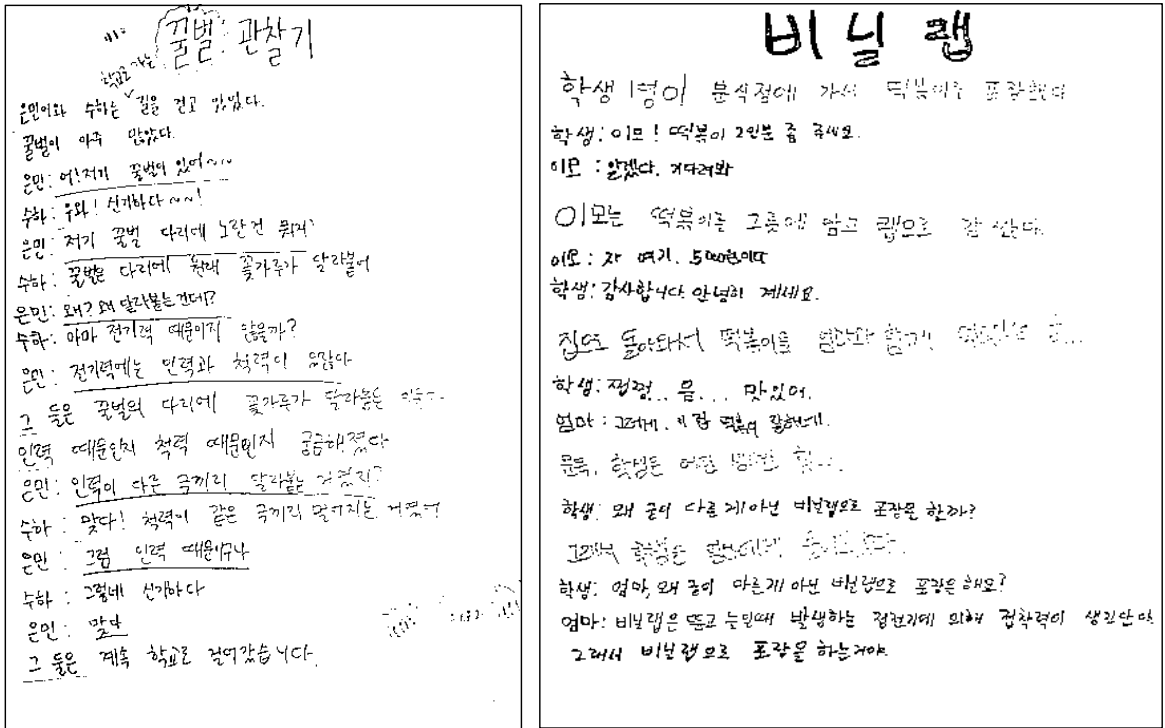 꿀벌: 관찰기
학교로 가는
은민이와 수하는 길을 걷고 있었다.
꿀벌이 아주 많았다.
은민: 어! 저기 꿀벌이 있어~~
수하: 우와! 신기하다~~!
은민: 저기 꿀벌 다리에 노란건 뭐지?
수하: 꿀벌은 다리에 원래 꽃가루가 달라붙어
은민: 왜? 왜 달라붙는건데?
수하: 아마 전기력 때문이지 않을까?
은민: 전기력에는 인력과 척력이 있잖아
그 둘은 꿀벌의 다리에 꽃가루가 달라붙는
인력 때문인지 척력 때문인지 궁금해졌다
은민: 인력이 다른 극끼리 달라붙는 거였지?
수하: 맞다! 척력이 같은 극끼리 떨어지는 거였어
은민: 그럼 인력 때문이구나
수하: 그렇네 신기하다
은민: 맞아
그 둘은 계속 학교로 걸어갔습니다.
비닐랩
학생 1명이 분식점에 가서 떡볶이를 포장했다
학생: 이모! 떡볶이 2인분 좀 주세요.
이모: 알겠다. 기다려봐
이모는 떡볶이를 그릇에 담고 랩으로 감싼다.
이모: 자 여기. 5000원이다
학생: 감사합니다. 안녕히 계세요.
집에 돌아와서 떡볶이를 엄마와 함께
학생: 쩝쩝.. 음... 맛있어.
엄마: 그러게. 떡볶이 잘하네.
문득, 학생은 어떤
학생: 왜 굳이 다른 게 아닌 비닐랩으로 포장을 할까?
그래서 학생은
학생: 엄마, 왜 굳이 다른게 아닌 비닐랩으로 포장을 해요?
엄마: 비닐랩은 뜯고 늘릴때 발생하는 정전기에 의해 접착력이 생긴단다.
그래서 비닐랩으로 포장을 하는거야.